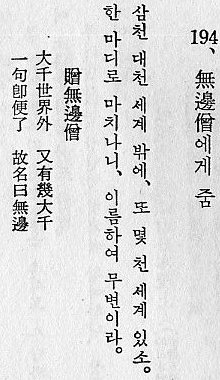 194、無邊僧에게 줌
삼천 대천 세계 밖에、또 몇 천 세계 있소。
한 마디로 마치나니、이름하여 무변이라。
贈無邊僧
大千世界外 又有幾大千
一句卽便了 故名曰無邊